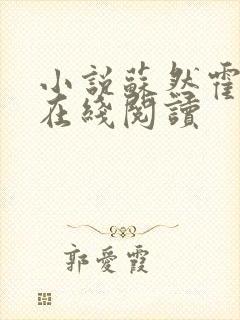 小說蘇然霍
在綫閱讀
郭愛霞